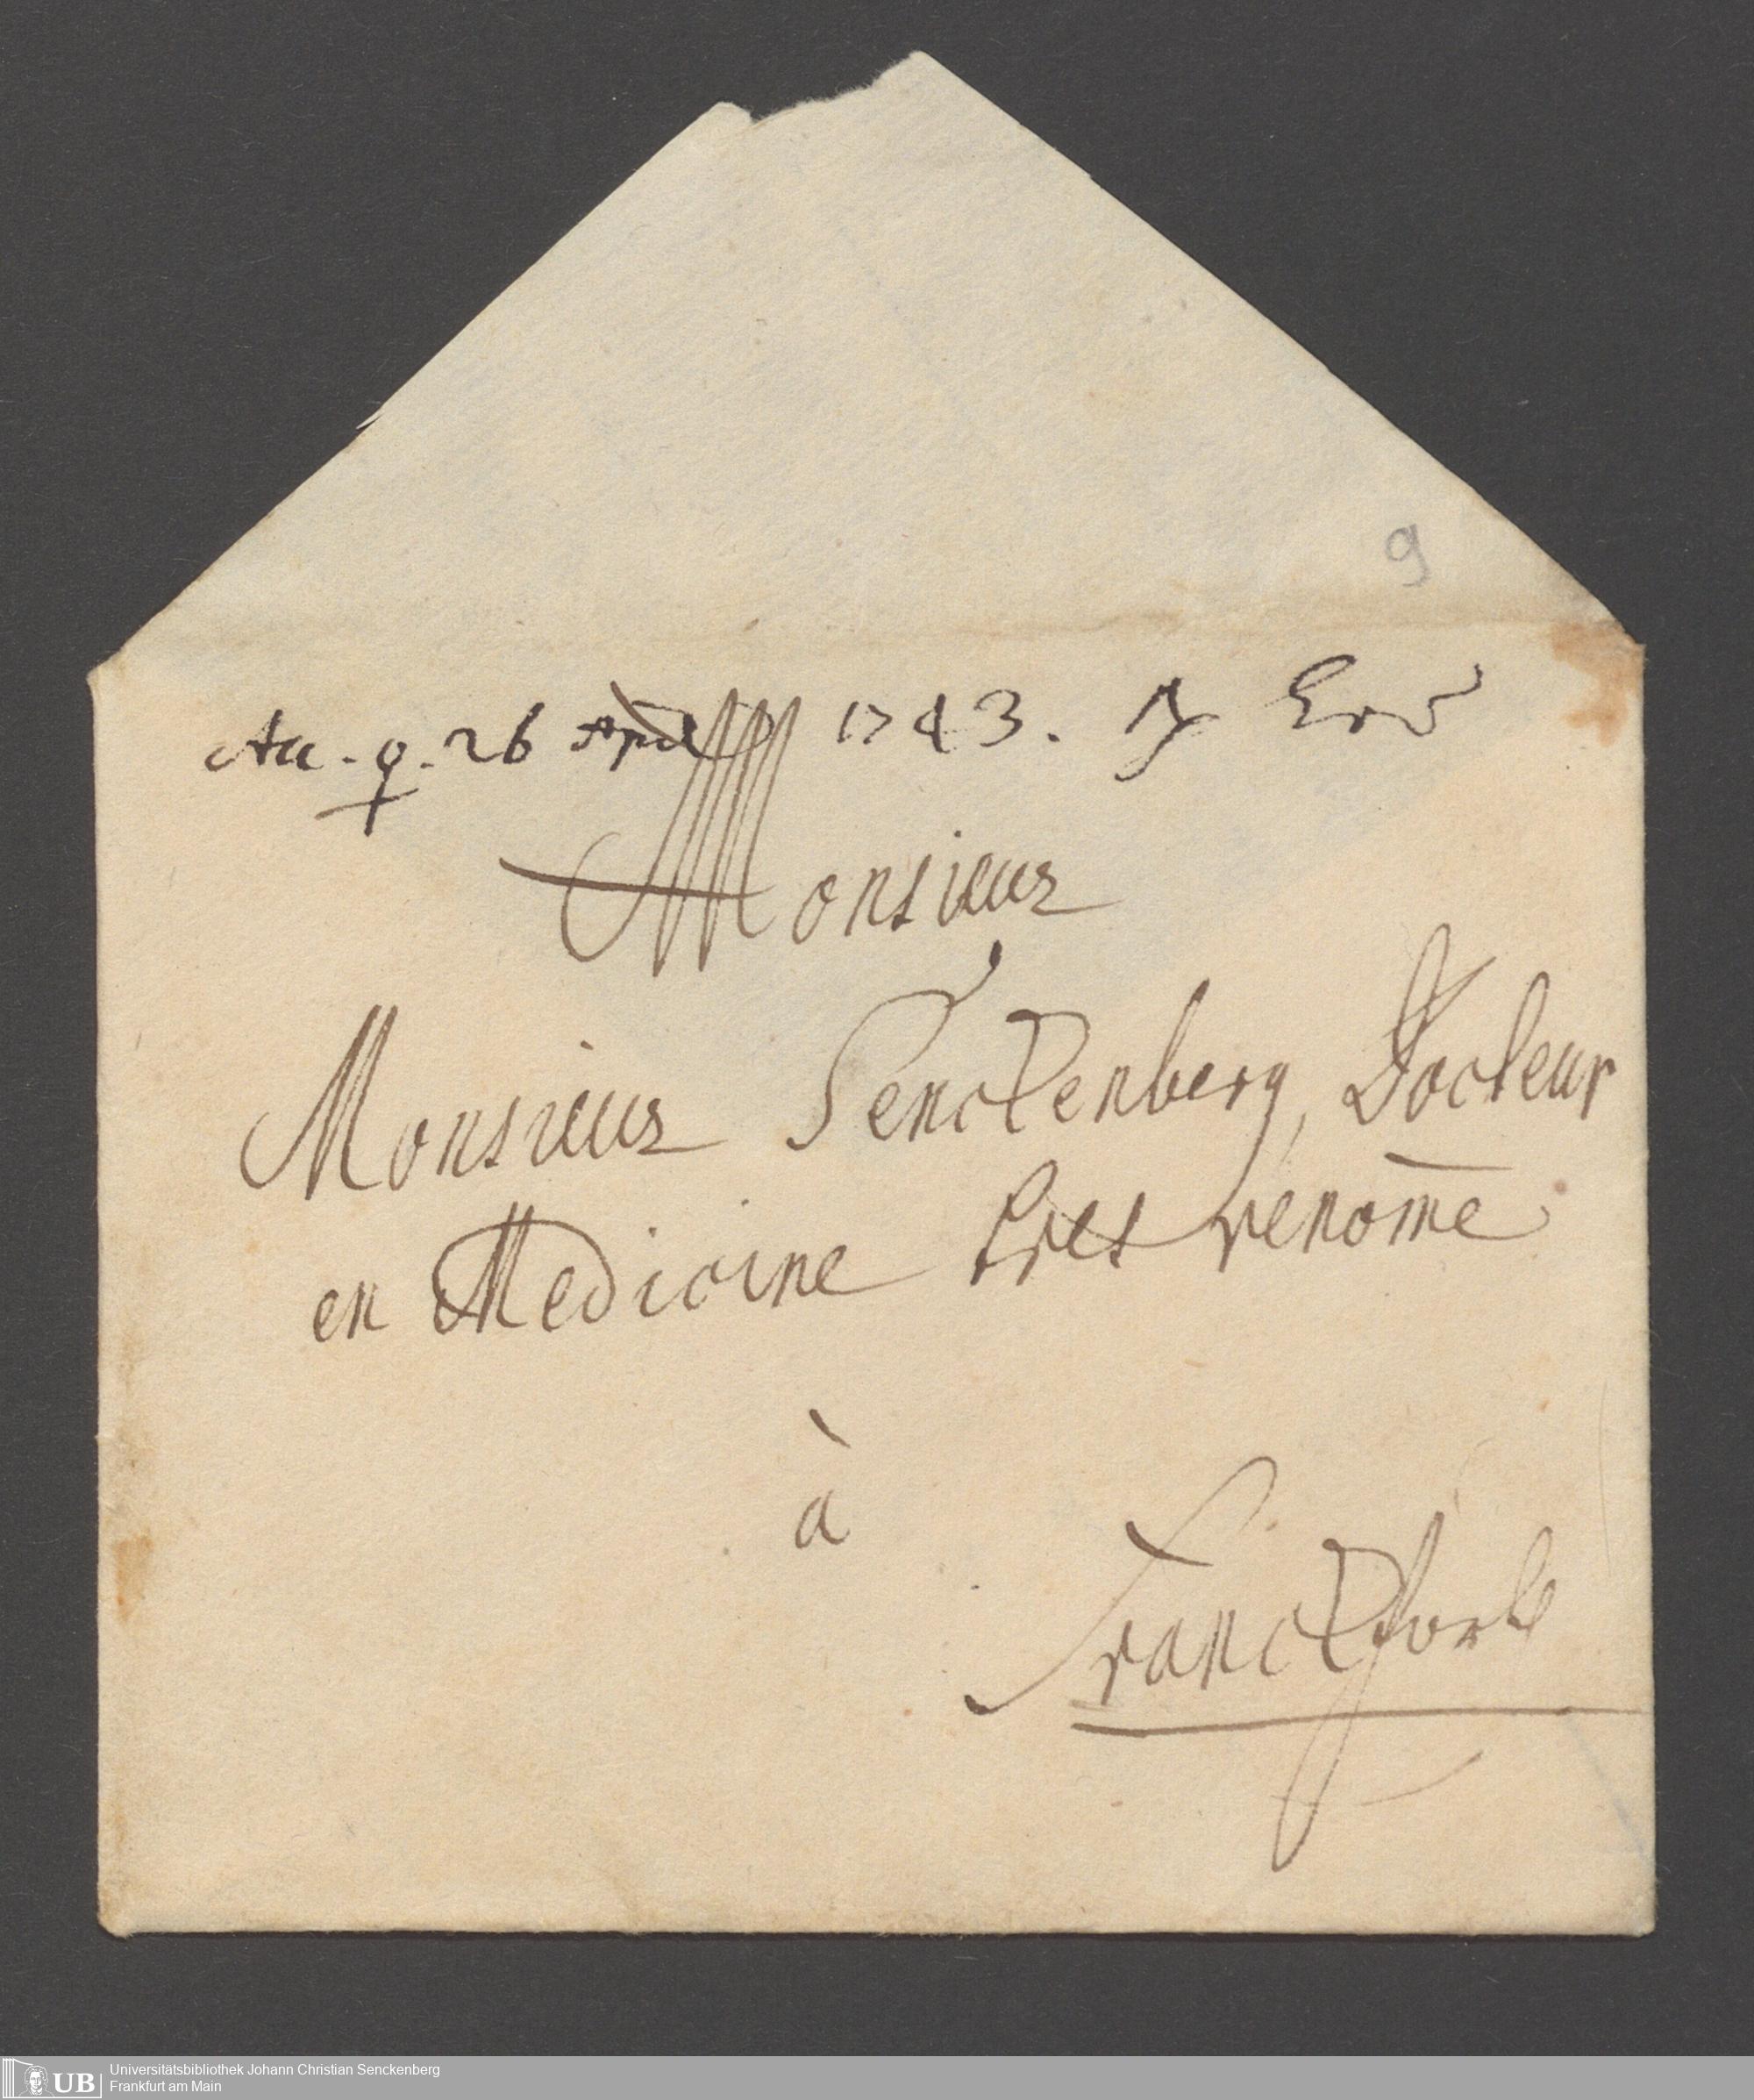 9
Acc. ♀. 26 April 1743.
Monsieur
Monsieur Senckenberg, Docteur
en Medicine tres renom̄e
à
Franckfort
UB Universitätsbibliothek Johann Christian Senckenberg
Frankfurt am Main